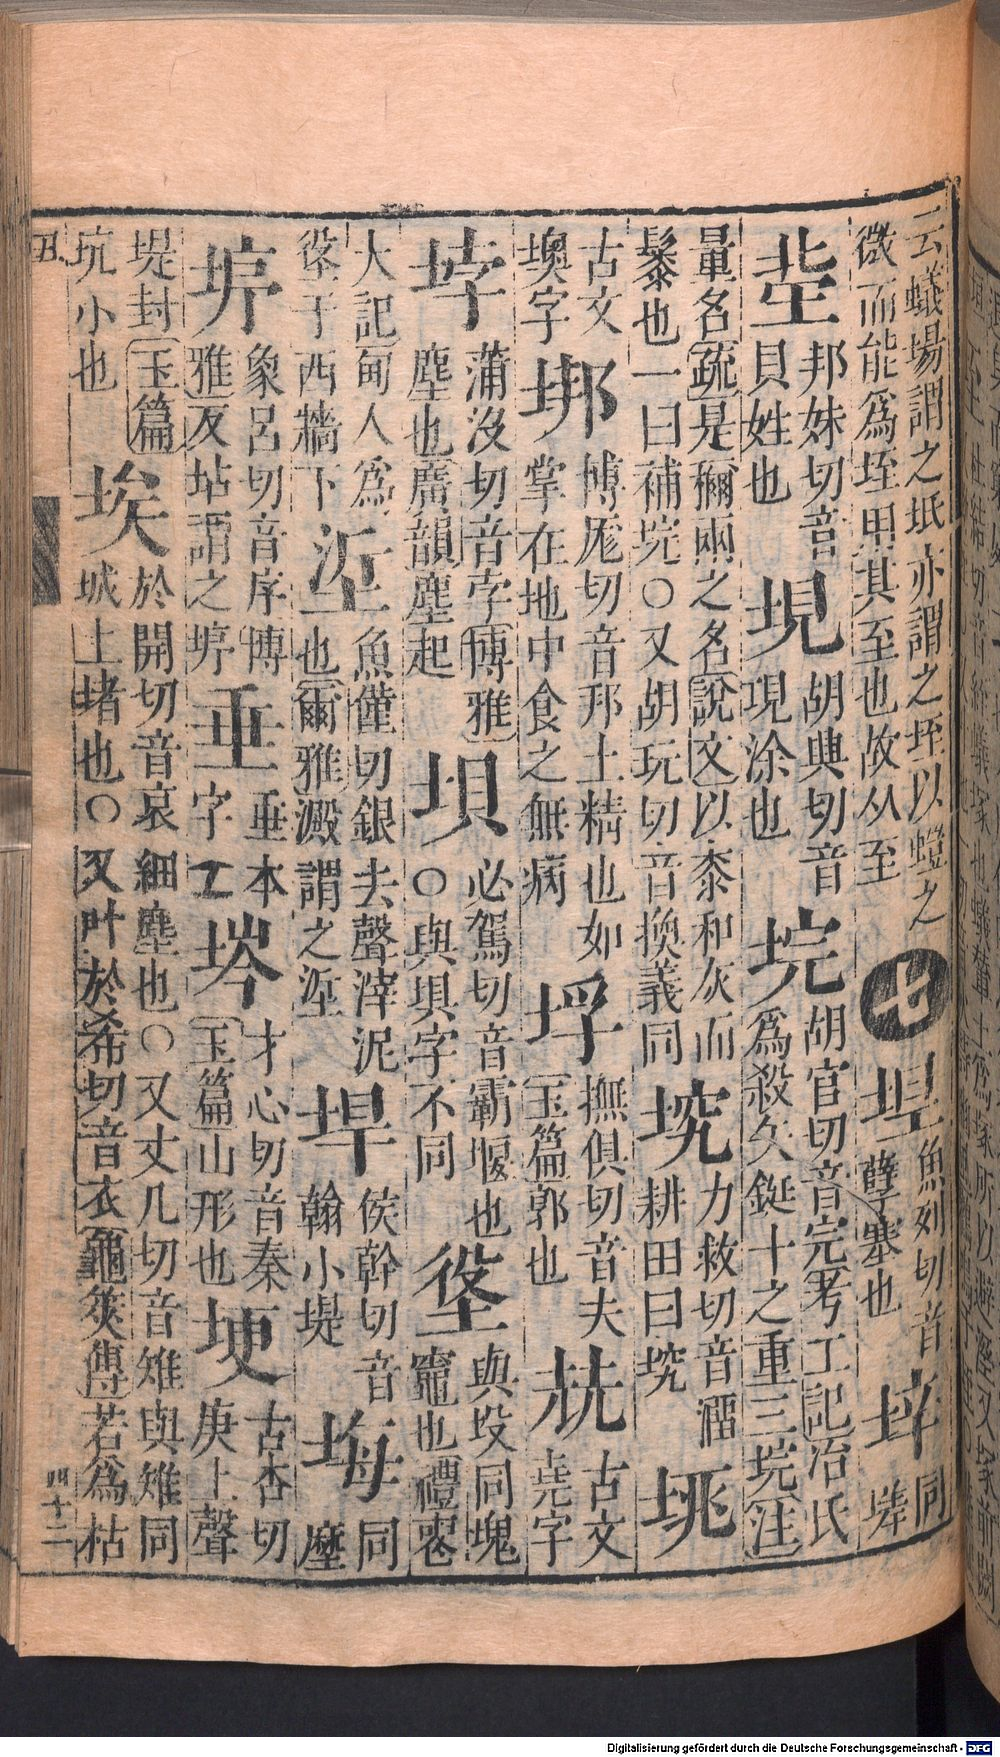 云蟻場謂之坻亦謂之垤以螘之
微而能爲垤甲其至也故从至
七
垾魚列切音
孽塞也
垶同
垶
邦妹切音
貝姓也
垷
胡典切音
垷涂也
垸
胡官切音完考工記冶氏
爲殺矢鋌十之重三垸注
量名疏是稱兩之名說文以桼和灰而
髹也一曰補垸〇又胡玩切音換義同
堥
力救切音溜
耕田曰
垗
古文
墺字
垹
博厖切音邦土精也如
掌在地中食之無病
垺
撫俱切音夫
玉篇郭也
古文
堯字
垿
蒲沒切音孛博雅
塵也廣韻塵起
垻
必駕切音霸堰也
〇與埧字不同
垼
與坄同塊
竈也禮喪
大記甸人爲
垼于西牆下
垽
魚僅切銀去聲滓泥
也爾雅澱謂之垽
垾
侯幹切音
翰小堤
塰
同
塺
垿
象呂切音序博
雅反坫謂之垿
垂
垂本
字
埁
才心切音秦
玉篇山形也
埂
古杏切
庚上聲
堤封玉篇
坑小也
埃
於開切音哀細塵也〇又丈几切音雉與雉同
城土堵也〇又叶於希切音衣龜筴傳若爲枯
丑
四十二
Digitalisierung gefördert durch die Deutsche Forschungsgemeinschaft - DFG